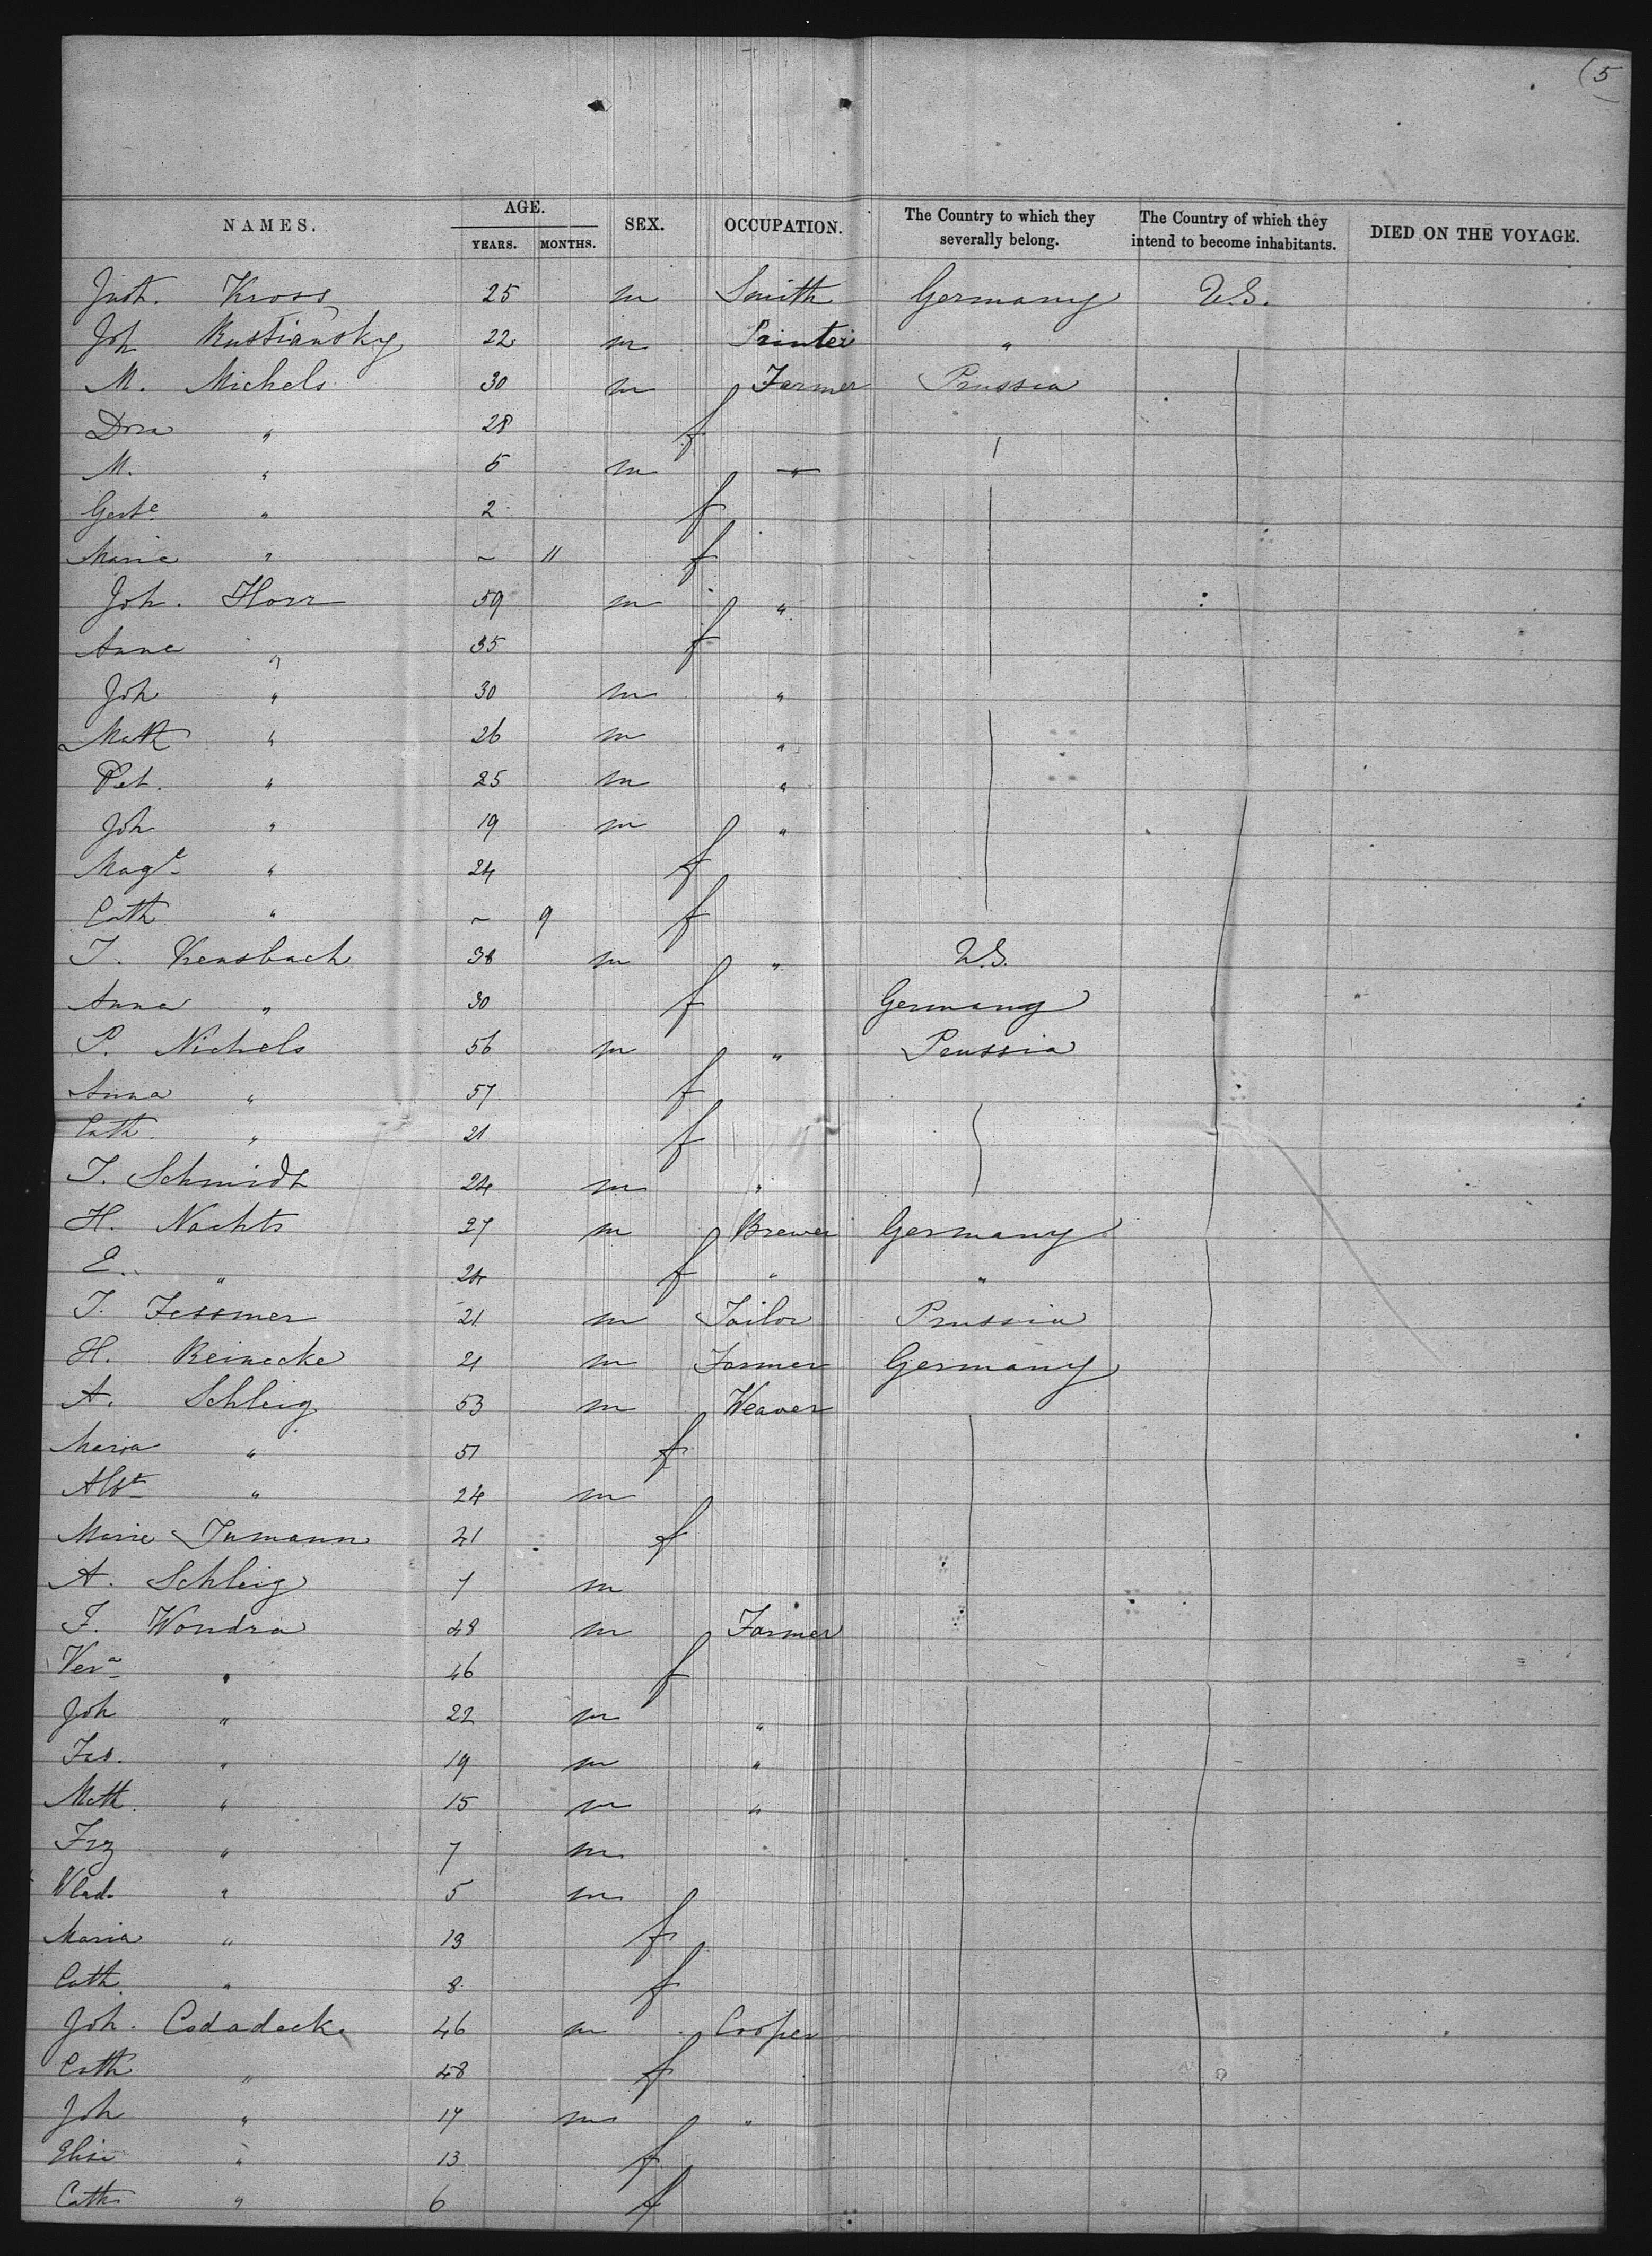 (5
NAMES. AGE. SEX. OCCUPATION. The Country to which they severally belong. The Country of which they intend to become inhabitants. DIED ON THE VOYAGE.
YEARS. MONTHS.
Kross 25 m Smith Germany U.S.
Joh Rustiansky 22 m Printer "
M. Michels 30 m Farmer Prussia
Dora " 28 f
M. " 5 m "
Gert " 2 f
Marie " ~ 11 f
Joh. Horr 59 m "
Anna " 35 f
Joh " 30 m "
Math " 26 m "
Pet. " 25 m "
Joh " 19 m "
Magd " 24 f
Cath " ~ 9 f
J. Kensbach 38 m " U.S.
Anna " 30 f Germany
P. Nichels 56 m " Prussia
Anna " 57 f
Cath. " 21 f
J. Schmidt 24 m "
H. Nachts 27 m Brewer Germany
E. " 24 f " "
J. Fessmer 21 m Tailor Prussia
H. Reinecke 21 m Farmer Germany
A. Schleig 53 m Weaver
Maria " 51 f
Albt " 24 m
Marie Tumann 21 f
A. Schleig 7 m
F. Wondra 48 m Farmer
Vera " 46 f
Joh " 22 m "
Jos. " 19 m "
Math. " 15 m "
Frz " 7 m
Wlad. " 5 m
Maria " 13 f
Cath. " 8 f
Joh. Codadeck 46 m Cooper
Cath " 48 f
Joh " 17 m "
Elise " 13 f
Cath " 6 f